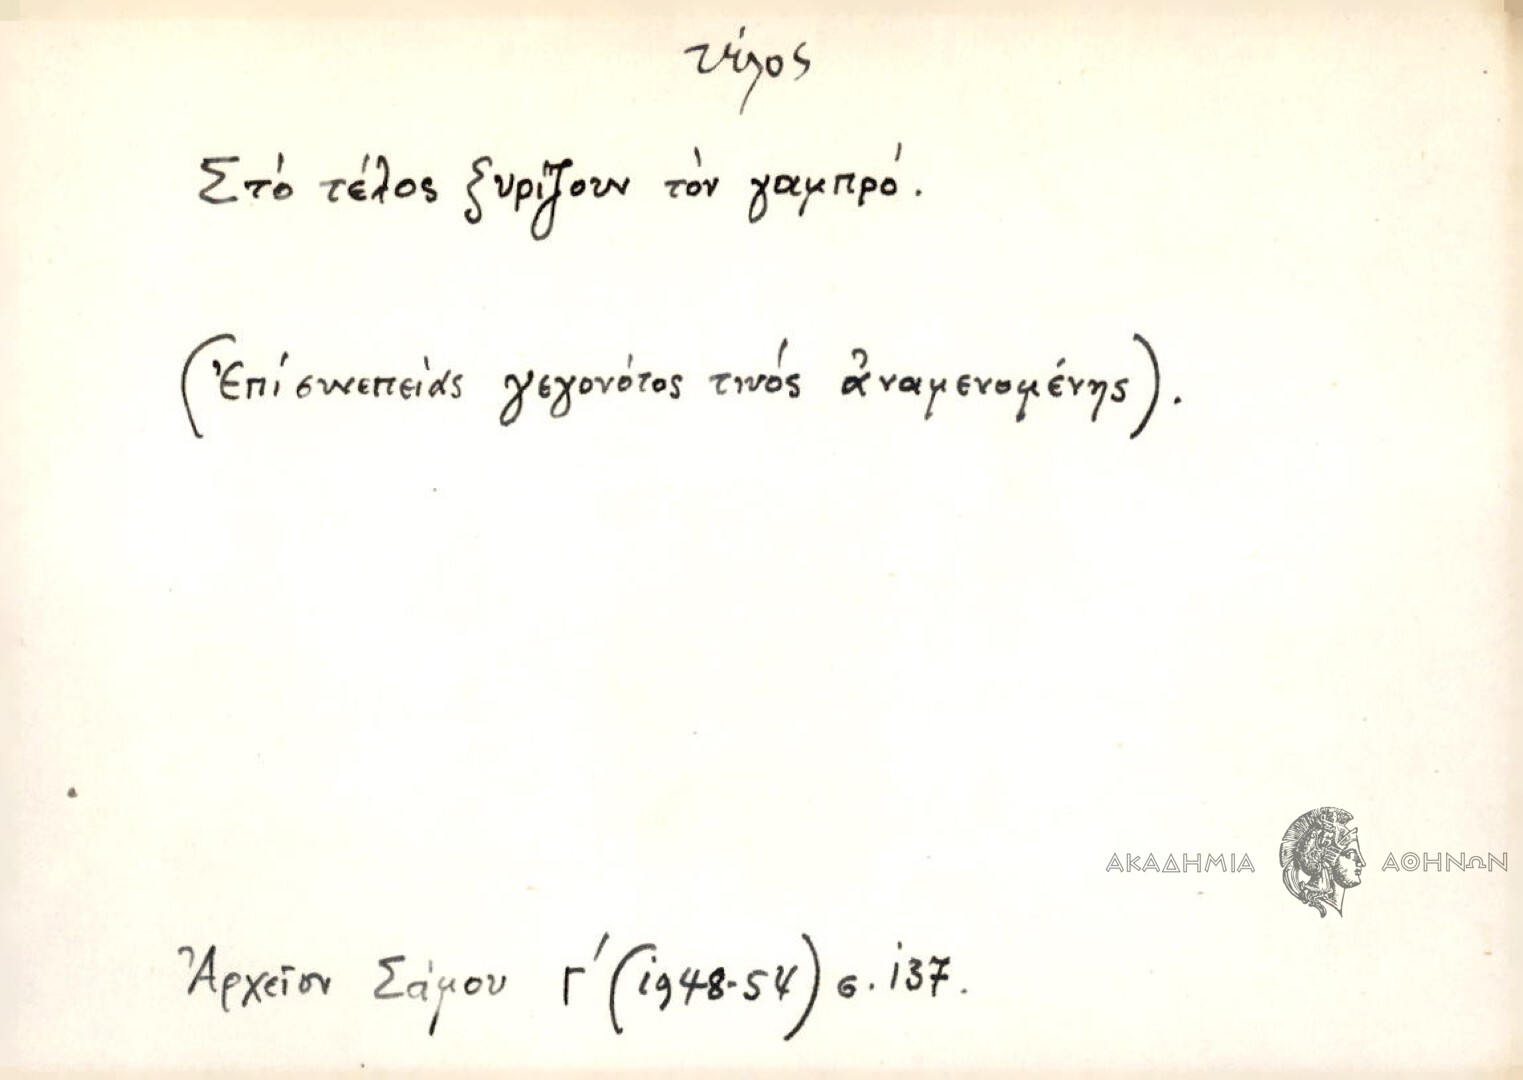 τέλος
Στό τέλος ξυρίζουν τὸν γαμπρό.
(Ἐπί συνεπείας γεγονότος τινός ἀναμενομένης).
ΑΚΑΔΗΜΙΑ ΑΘΗΝΩΝ
Ἀρχεῖον Σάμου Γ΄ (1948-54) σ. 137.